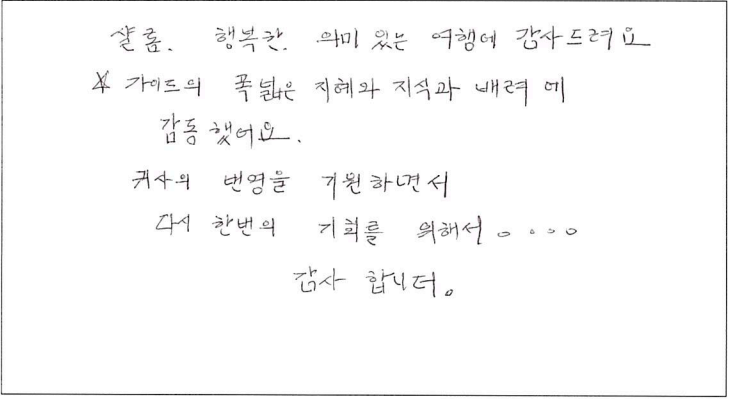 샬롬. 행복한. 의미 있는 여행에 감사드려요
* 가이드의 폭넓은 지혜와 지식과 배려에
감동했어요.
귀사의 번영을 기원하면서
다시 한번의 기회를 위해서 。...。
감사 합니더。